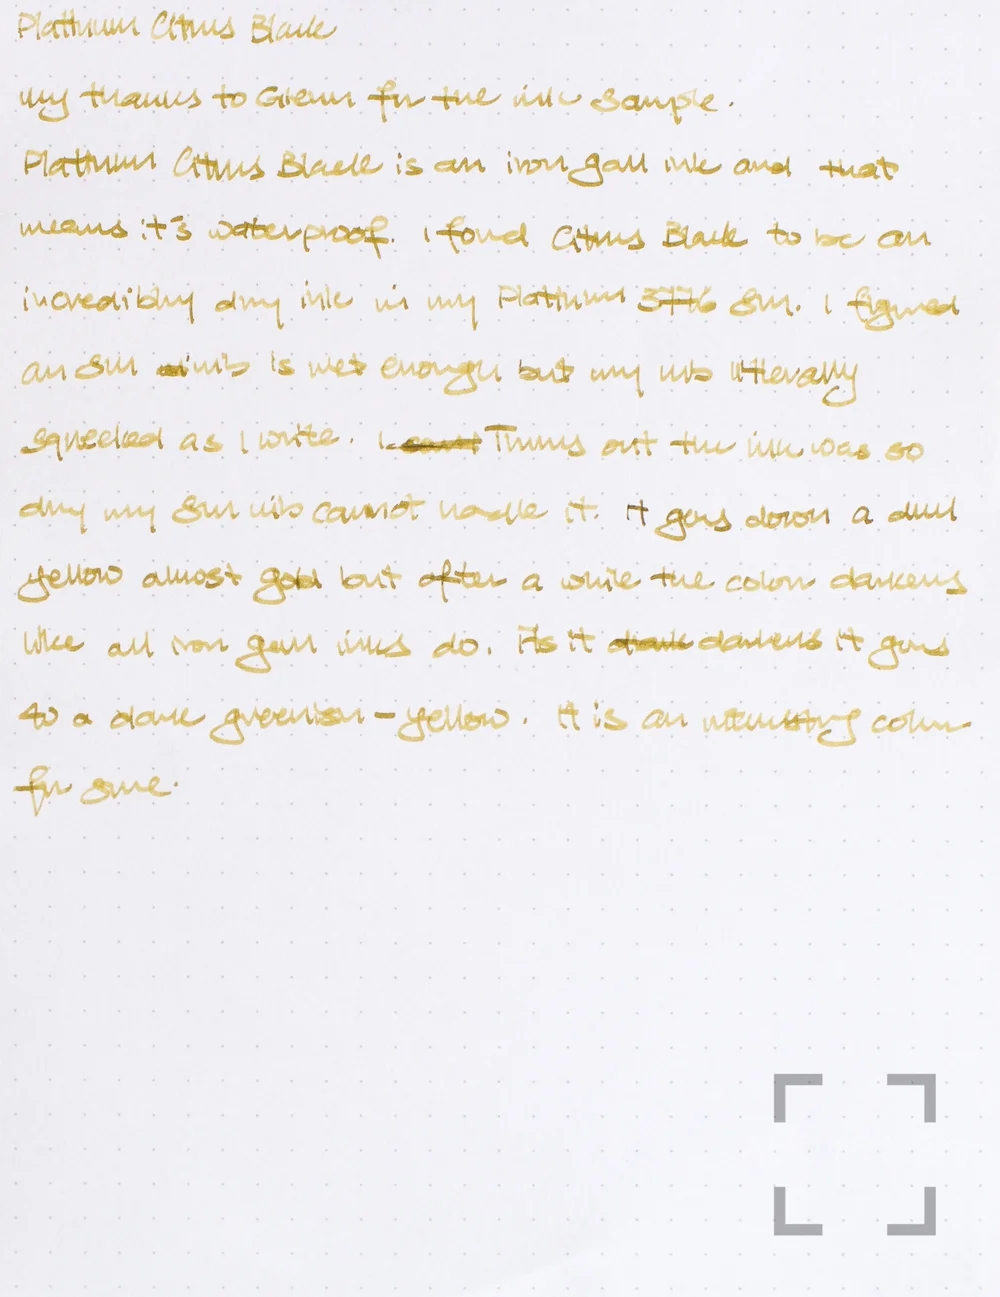 Platinum Citrus Black
my thanks to Glenn for the ink sample.
Platinum Citrus Black is an iron gall ink and that
means it's waterproof. I found Citrus Black to be an
incredibly dry ink in my Platinum 3776 Sm. I figured
an Sm nib is wet enough but my nib literally
squeeked as I write. I Turns out the ink was so
dry my Sm nib cannot handle it. It goes down a dull
yellow almost gold but after a while the color darkens
like all iron gall inks do. As it darkens it goes
to a dark greenish-yellow. It is an interesting color
for sure.